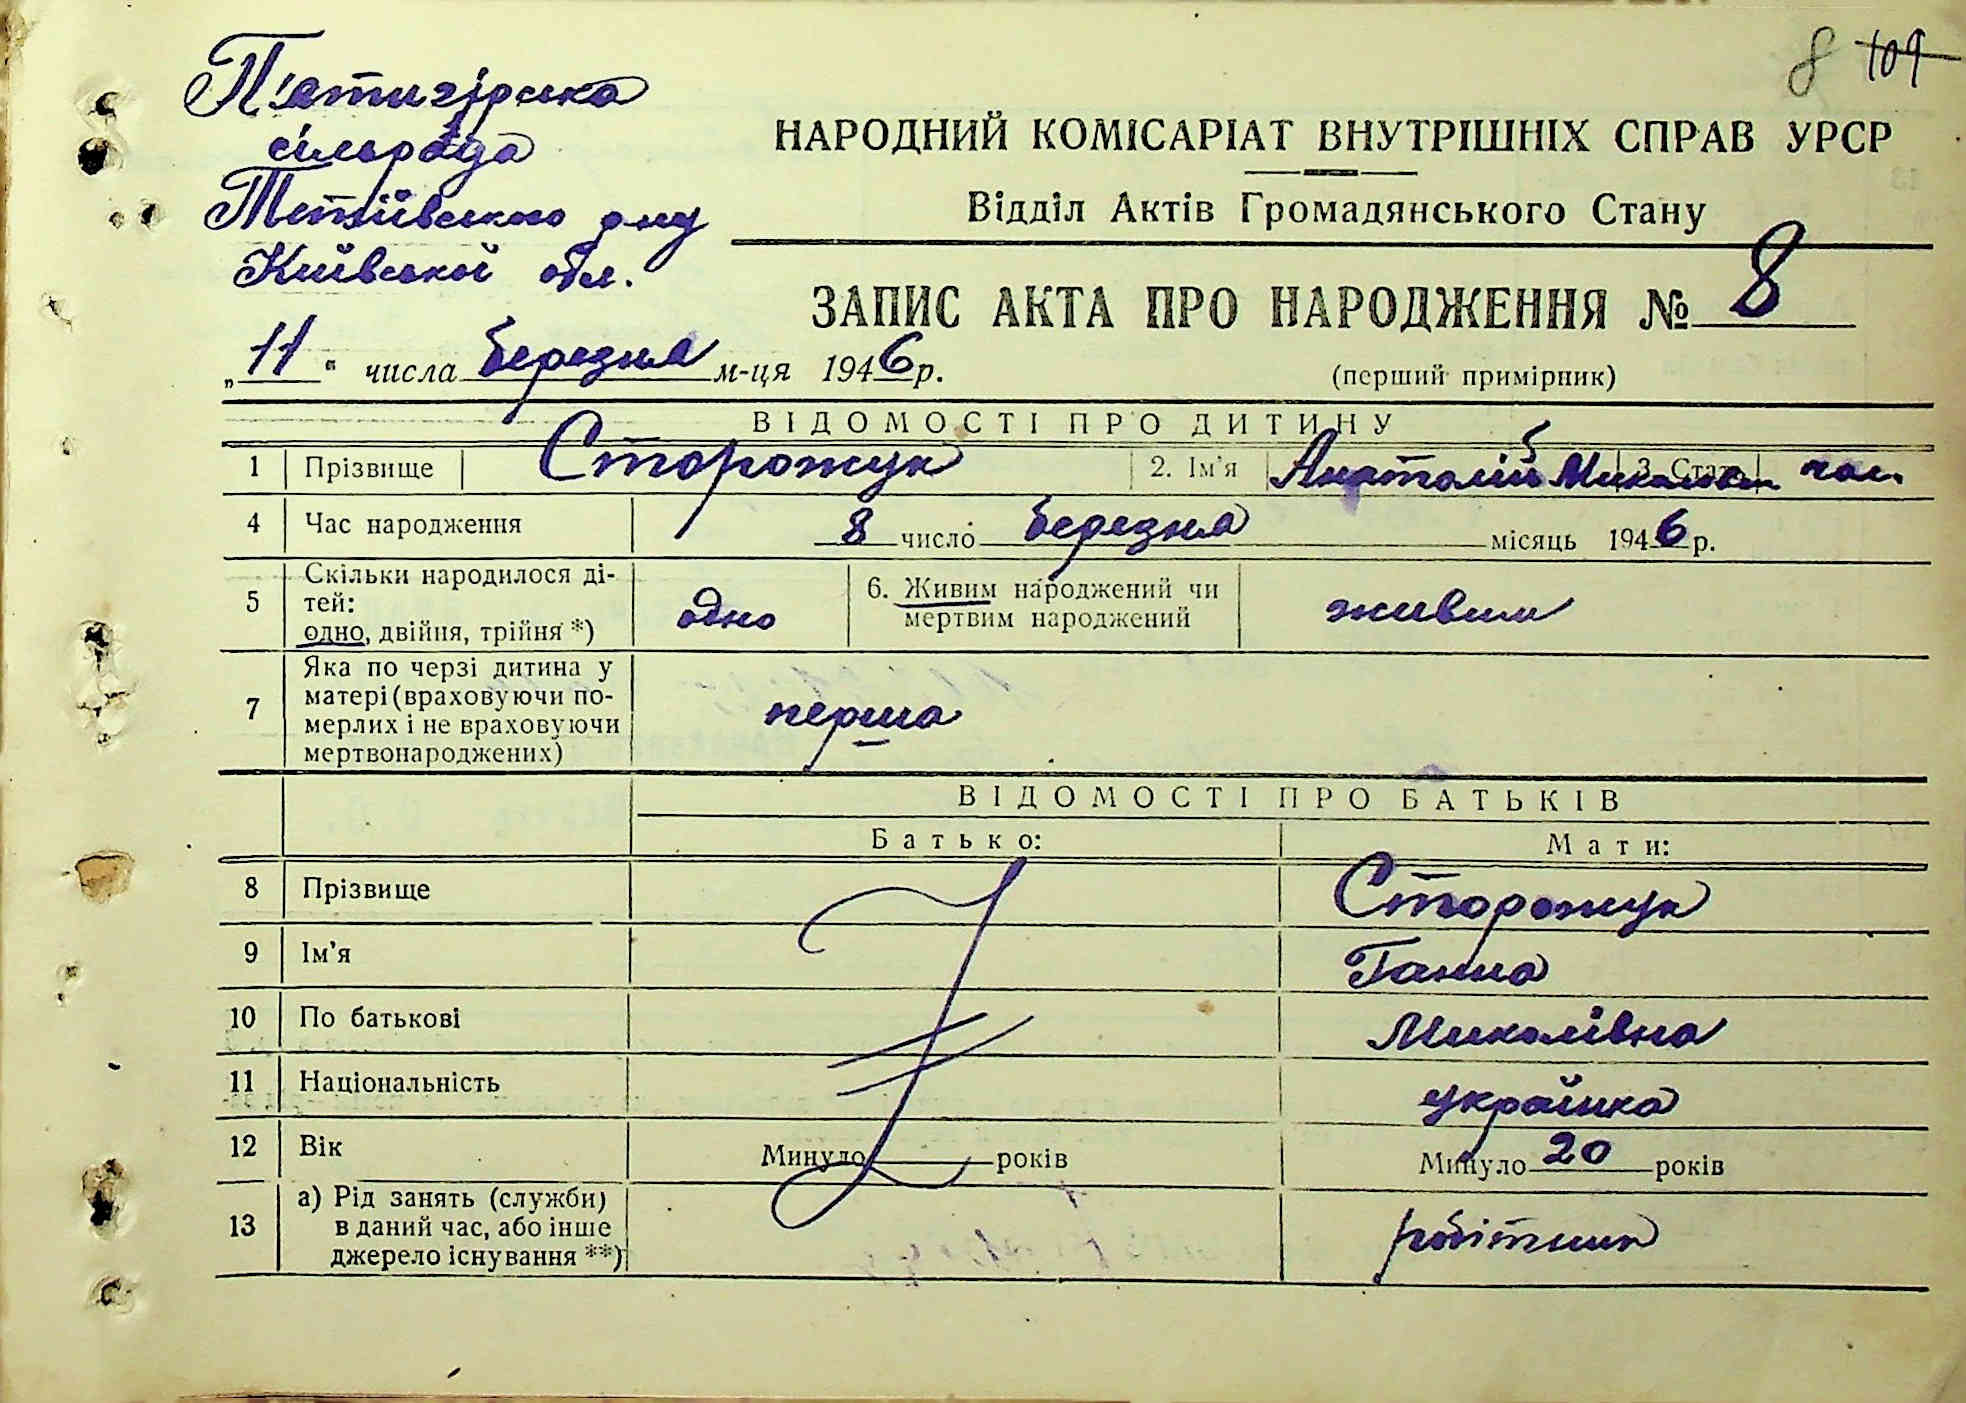 8 109
П'ятигірська
сільрада
Тетіївського р-ну
Київської обл.
НАРОДНИЙ КОМІСАРІАТ ВНУТРІШНІХ СПРАВ УРСР
Відділ Актів Громадянського Стану
ЗАПИС АКТА ПРО НАРОДЖЕННЯ № 8
„11“ числа березня м-ця 1946 р.
(перший примірник)
ВІДОМОСТІ ПРО ДИТИНУ
1 Прізвище Сторожук 2. Ім'я Анатолій Миколов. 3. Стать чол.
4 Час народження 8 число березня місяць 1946 р.
5 Скільки народилося ді-
тей:
одно, двійня, трійня *)
одно
6. Живим народжений чи
мертвим народжений
живим
7 Яка по черзі дитина у
матері (враховуючи по-
мерлих і не враховуючи
мертвонароджених)
перша
ВІДОМОСТІ ПРО БАТЬКІВ
Батько: Мати:
8 Прізвище Сторожук
9 Ім'я Ганна
10 По батькові Миколівна
11 Національність українка
12 Вік Минуло років Минуло 20 років
13 а) Рід занять (служби)
в даний час, або інше
джерело існування **)
робітник